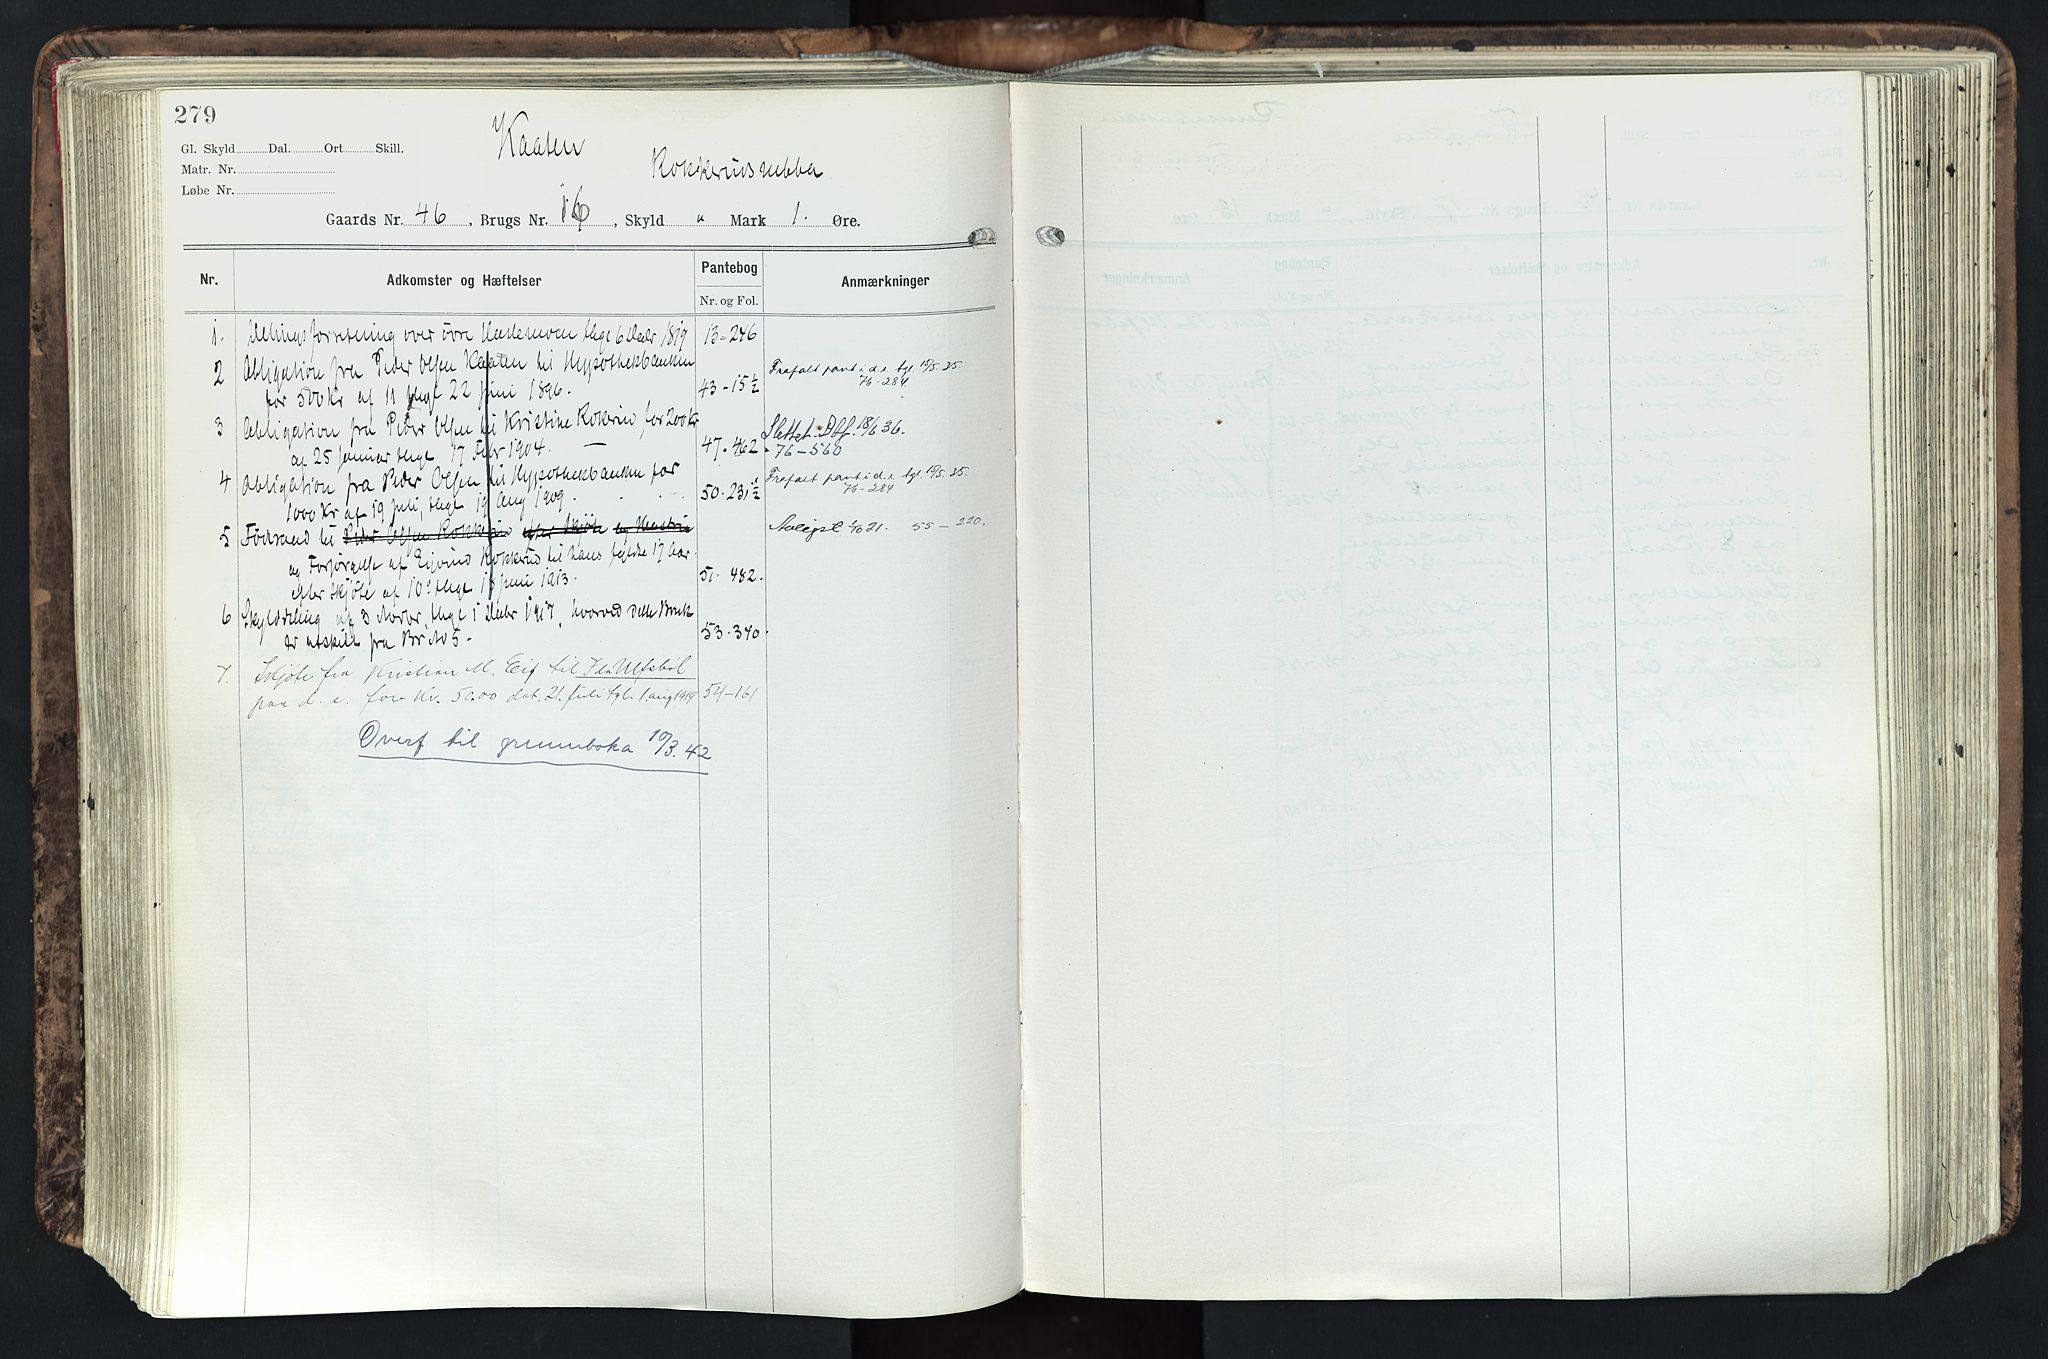 279
Gl. Skyld Dal. Ort Skill.
Matr. Nr.
Løbe Nr.
Kaaten
Rokkerudsnubba
Gaards Nr. 46, Brugs Nr. 16, Skyld " Mark 1. Øre.
Nr. Adkomster og Hæftelser Pantebog Anmærkninger
Nr. og Fol.
1. Delingsforretning over øvre thgl 6 Decbr 1819 13-246
2 Obligation fra Peder Olsen Kaaten til Hypothekbanken Frafalt pant i d.e. tgl. 15/5.35.
for 500 Kr af 11 thgl 22 juni 1896. 43-15½ 76-284
3 Obligation fra Peder Olsen til Kristine Rokerud for 200 Kr Slettet Dbf 18/6 36.
af 25 januar thgl 17 Febr 1904. 47-462. 76-560
4 Obligation fra Peder Olsen til Hypothekbanken for Frafalt pant i d.e. tgl. 15/5.35.
1000 Kr af 19 juli, thgl 19 Aug 1909. 50-231½ 76-284
5 Föderaad til Peder Olsen Rokkerud efter skjøte og Hustru 55-220.
og Forsørgelse af Eivind Rokkerud til hans fyldte 17 Aar
efter skjöte af 10 thgl juni 1913. 51-482.
6 Skylddeling af 3 Novbr, thgl 1 Decbr 1917, hvorved dette Bruk
er utskilt fra Br No 5. 53-340.
7. Skjøte fra Kristian M. Eid til Ida Ulfsbøl
paa d. e. for Kr. 50.00 dat. 21. juli tgl. 1. aug 1919 54-161
Overf til grunnboka 10/3.42